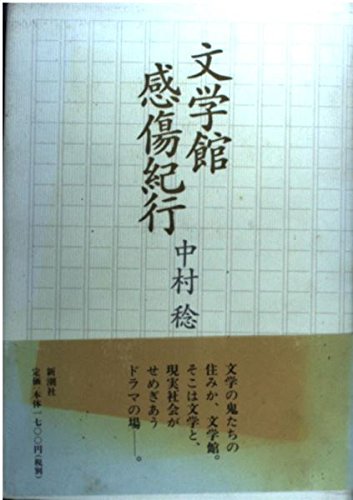 文学館
感傷紀行
中村 稔
文学の鬼たちの
住みか、文学館。
そこは文学と、
現実社会が
せめぎあう
ドラマの場——。
新潮社
定価 本体一七〇〇円(税別)